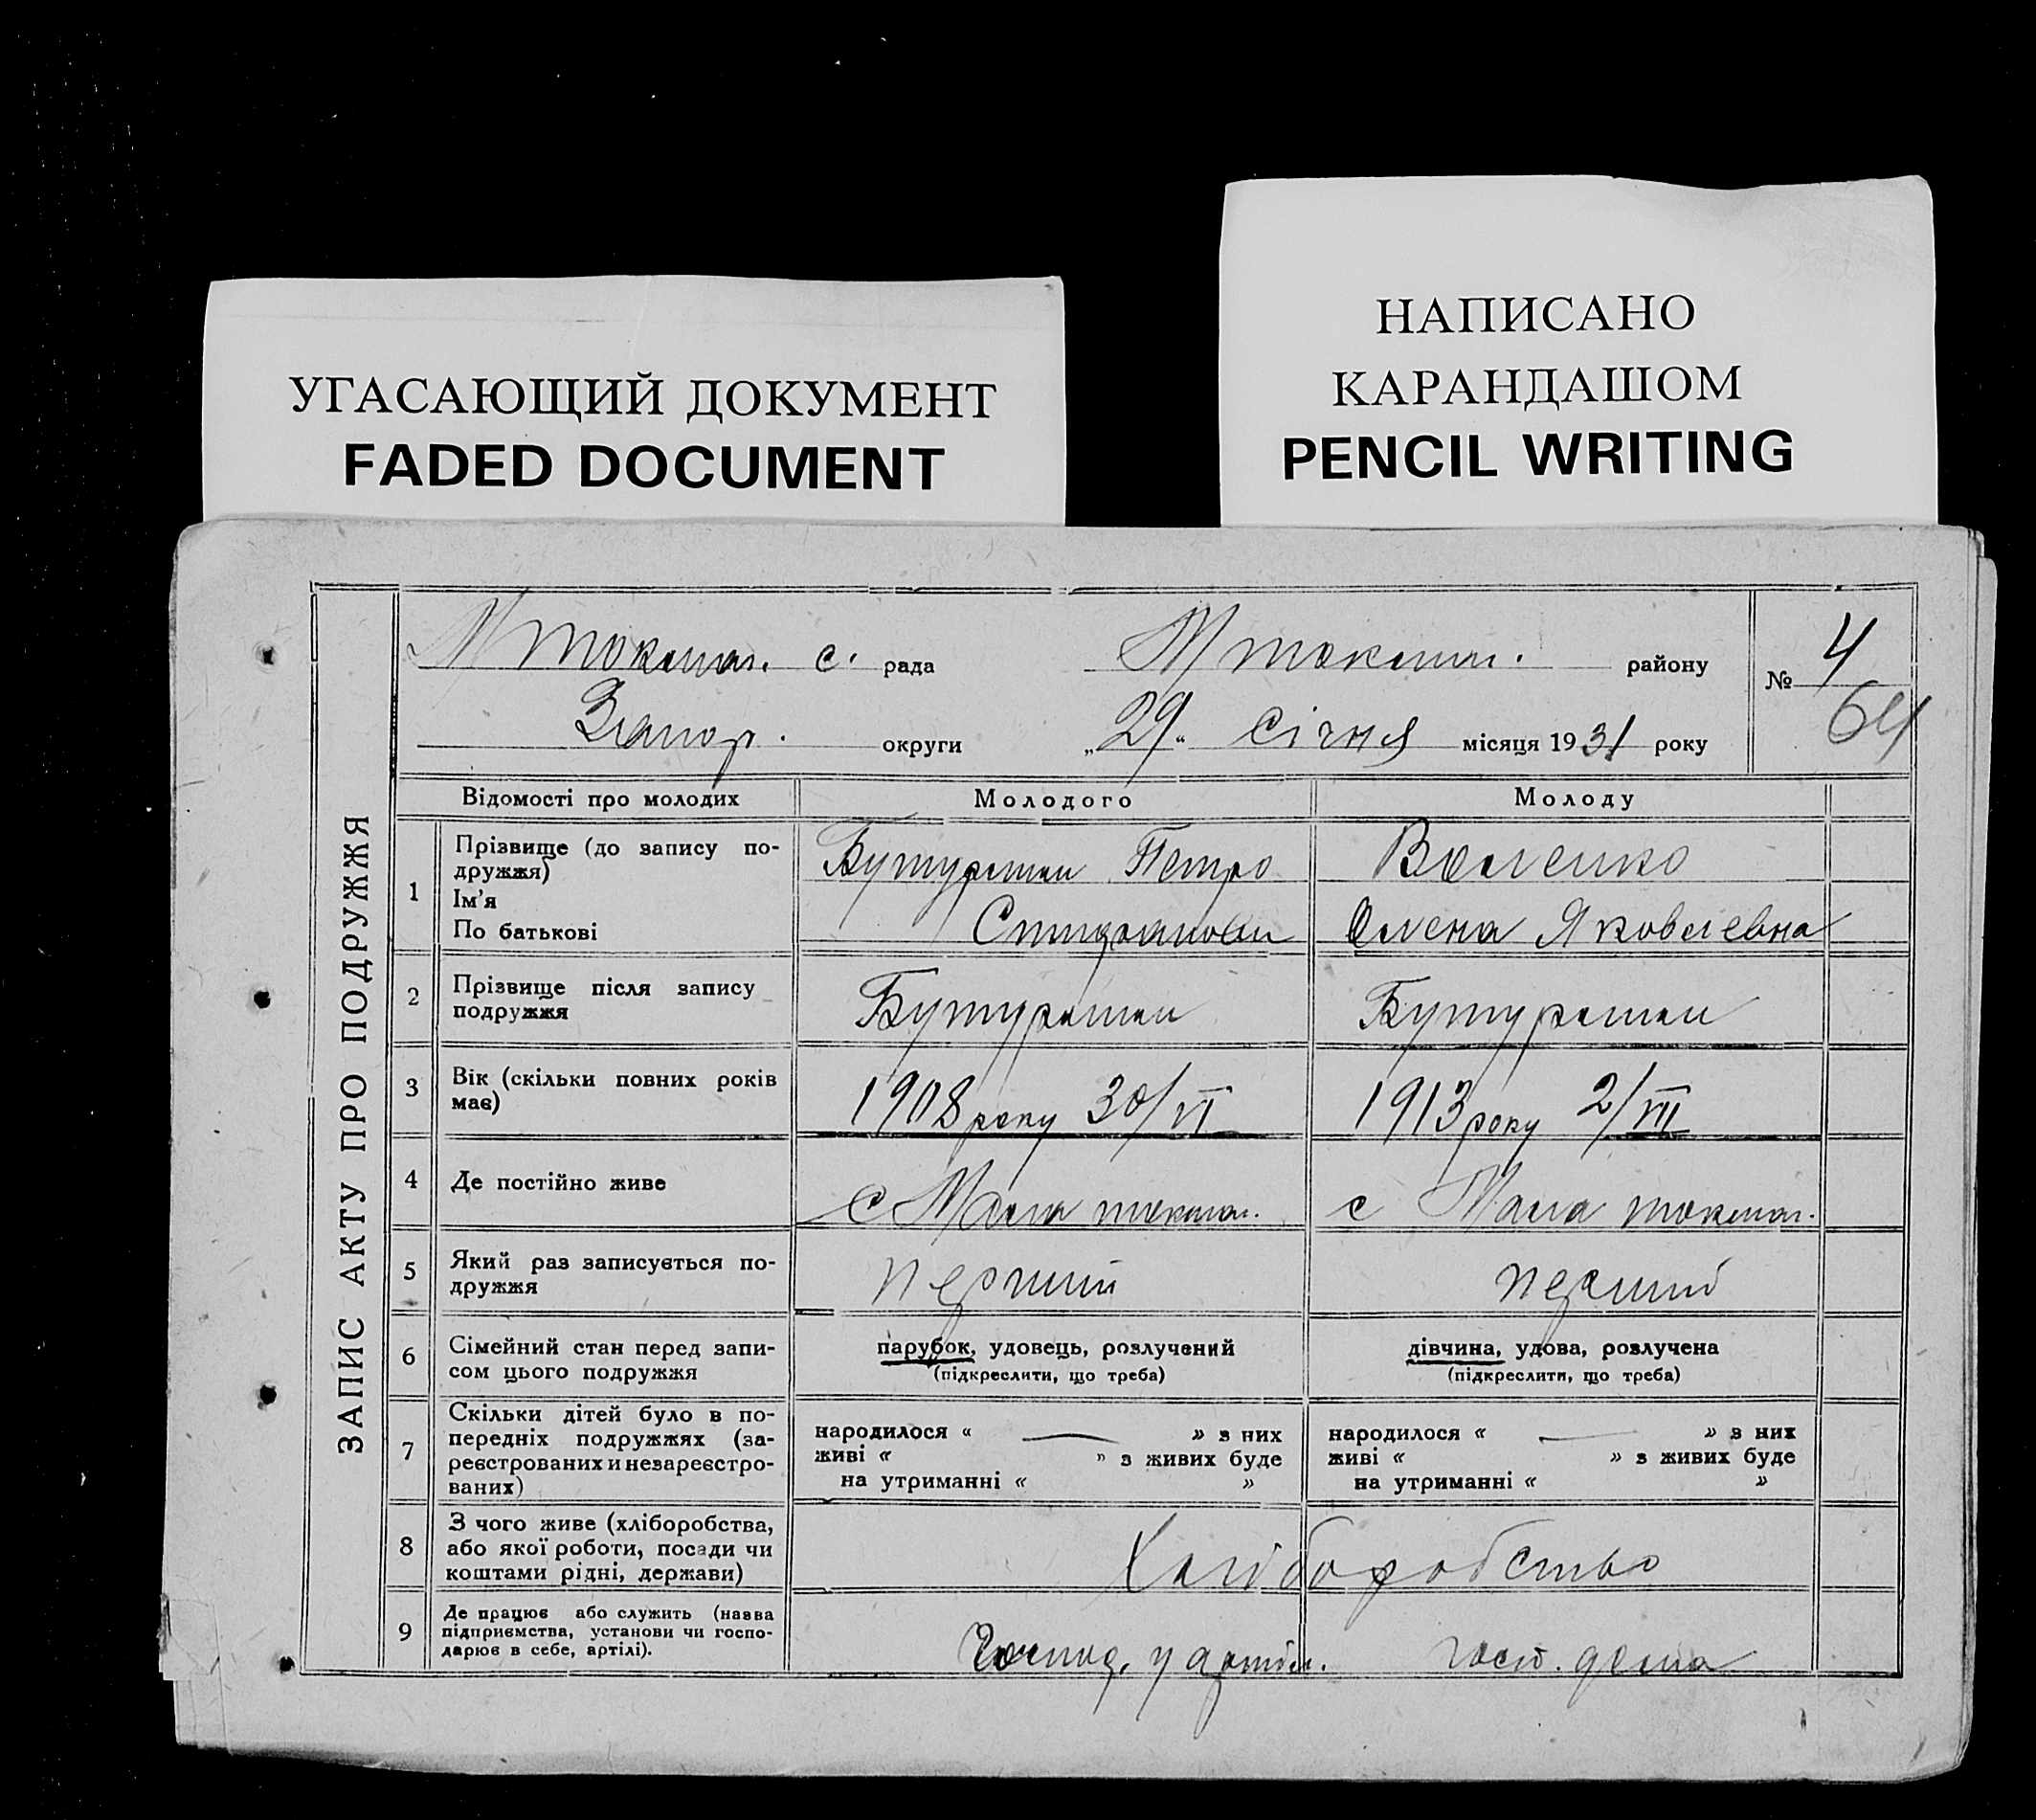 УГАСАЮЩИЙ ДОКУМЕНТ
FADED DOCUMENT
НАПИСАНО
КАРАНДАШОМ
PENCIL WRITING
ЗАПИС АКТУ ПРО ПОДРУЖЖЯ
М токмач. с. рада М токмач. району № 4
Запор. округи „29“ Січня місяця 1931 року 64
Відомості про молодих Молодого Молоду
1 Прізвище (до запису по-
дружжя)
Ім'я
По батькові
Петро
Олена Яковлевна
2 Прізвище після запису
подружжя
3 Вік (скільки повних років
має)
1908 року 30/VI 1913 року 2/VII
4 Де постійно живе с Мала токмач. с Мала токмач.
5 Який раз записується по-
дружжя
перший перший
6 Сімейний стан перед запи-
сом цього подружжя
парубок, удовець, розлучений
(підкреслити, що треба)
дівчина, удова, розлучена
(підкреслити, що треба)
7 Скільки дітей було в по-
передніх подружжях (за-
реєстрованих и незареєстро-
ваних)
народилося « — » з них
живі « » з живих буде
на утриманні « »
народилося « — » з них
живі « » з живих буде
на утриманні « »
8 З чого живе (хліборобства,
або якої роботи, посади чи
коштами рідні, держави)
Хліборобство
9 Де працює або служить (назва
підприємства, установи чи госпо-
дарює в себе, артілі).
Господ. у артіл. госп. дома